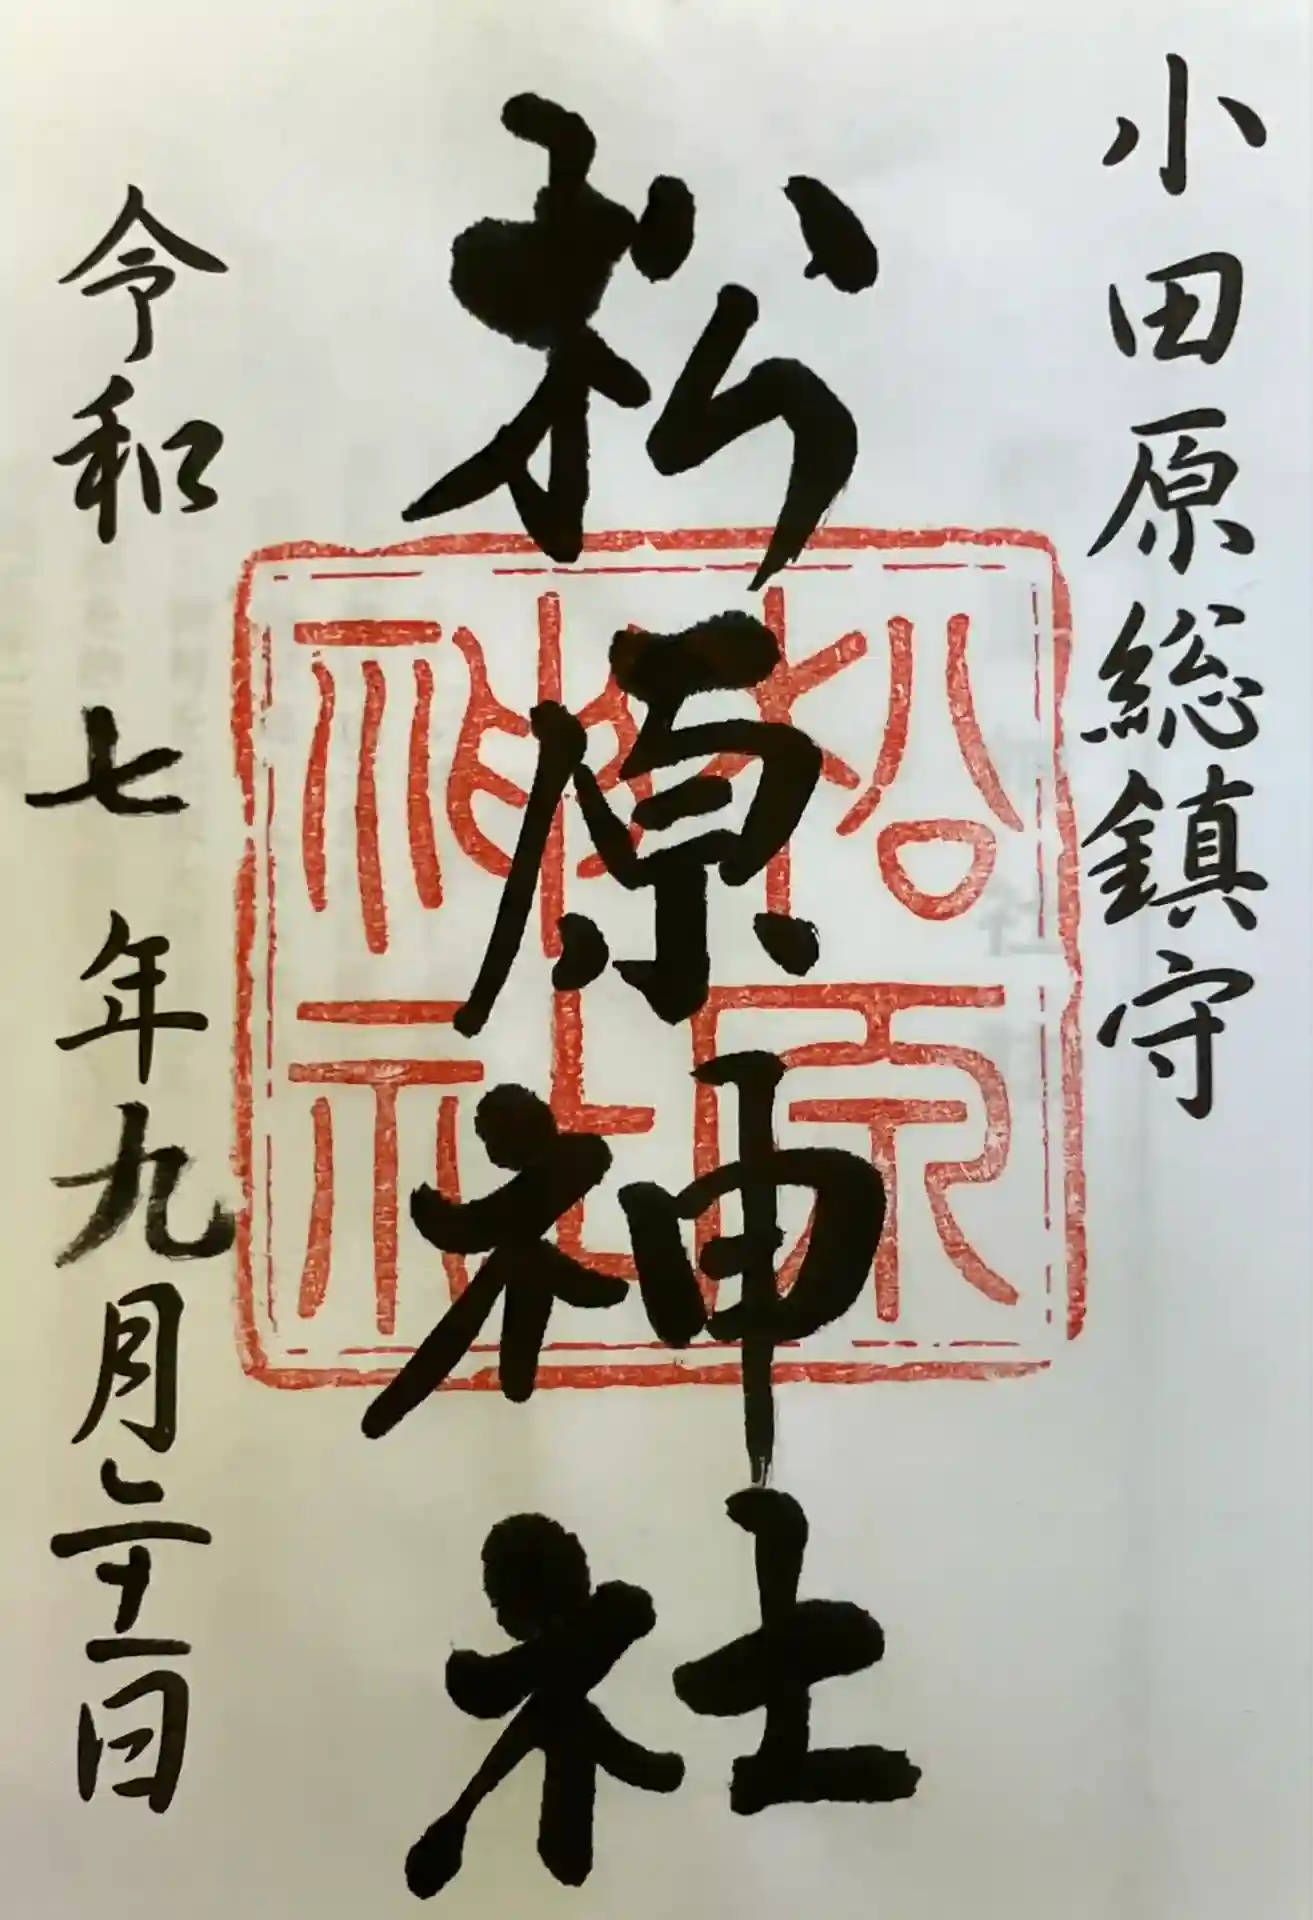 小田原総鎮守
松原神社
令和七年九月二十一日
松原
神社